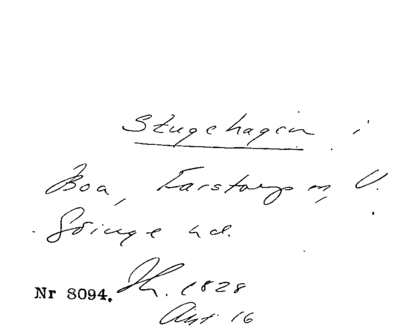 Stugehagen i
Boa, Farstorps sn, V.
Göinge hd.
Nr 8094. Th. 1828
Akt 16